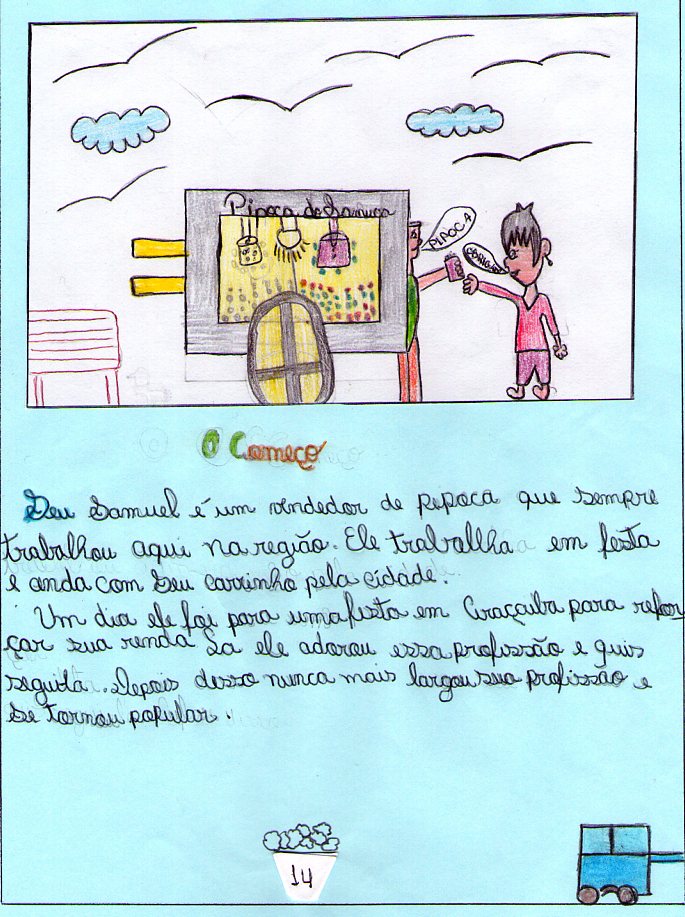 Pipoca do Samuca
PIPOCA
OBRIGADO
O Começo
Seu Samuel é um vindedor de pipoca que sempre
trabalhou aqui na região. Ele traballha em festa
e anda com seu carrinho pela cidade.
Um dia ele foi para uma festa em Craçaiba para refor
çar sua renda La ele adorou essa profissão e quis
seguila. Depois desso nunca mais largou sua profissão e
se tornou popular.
14